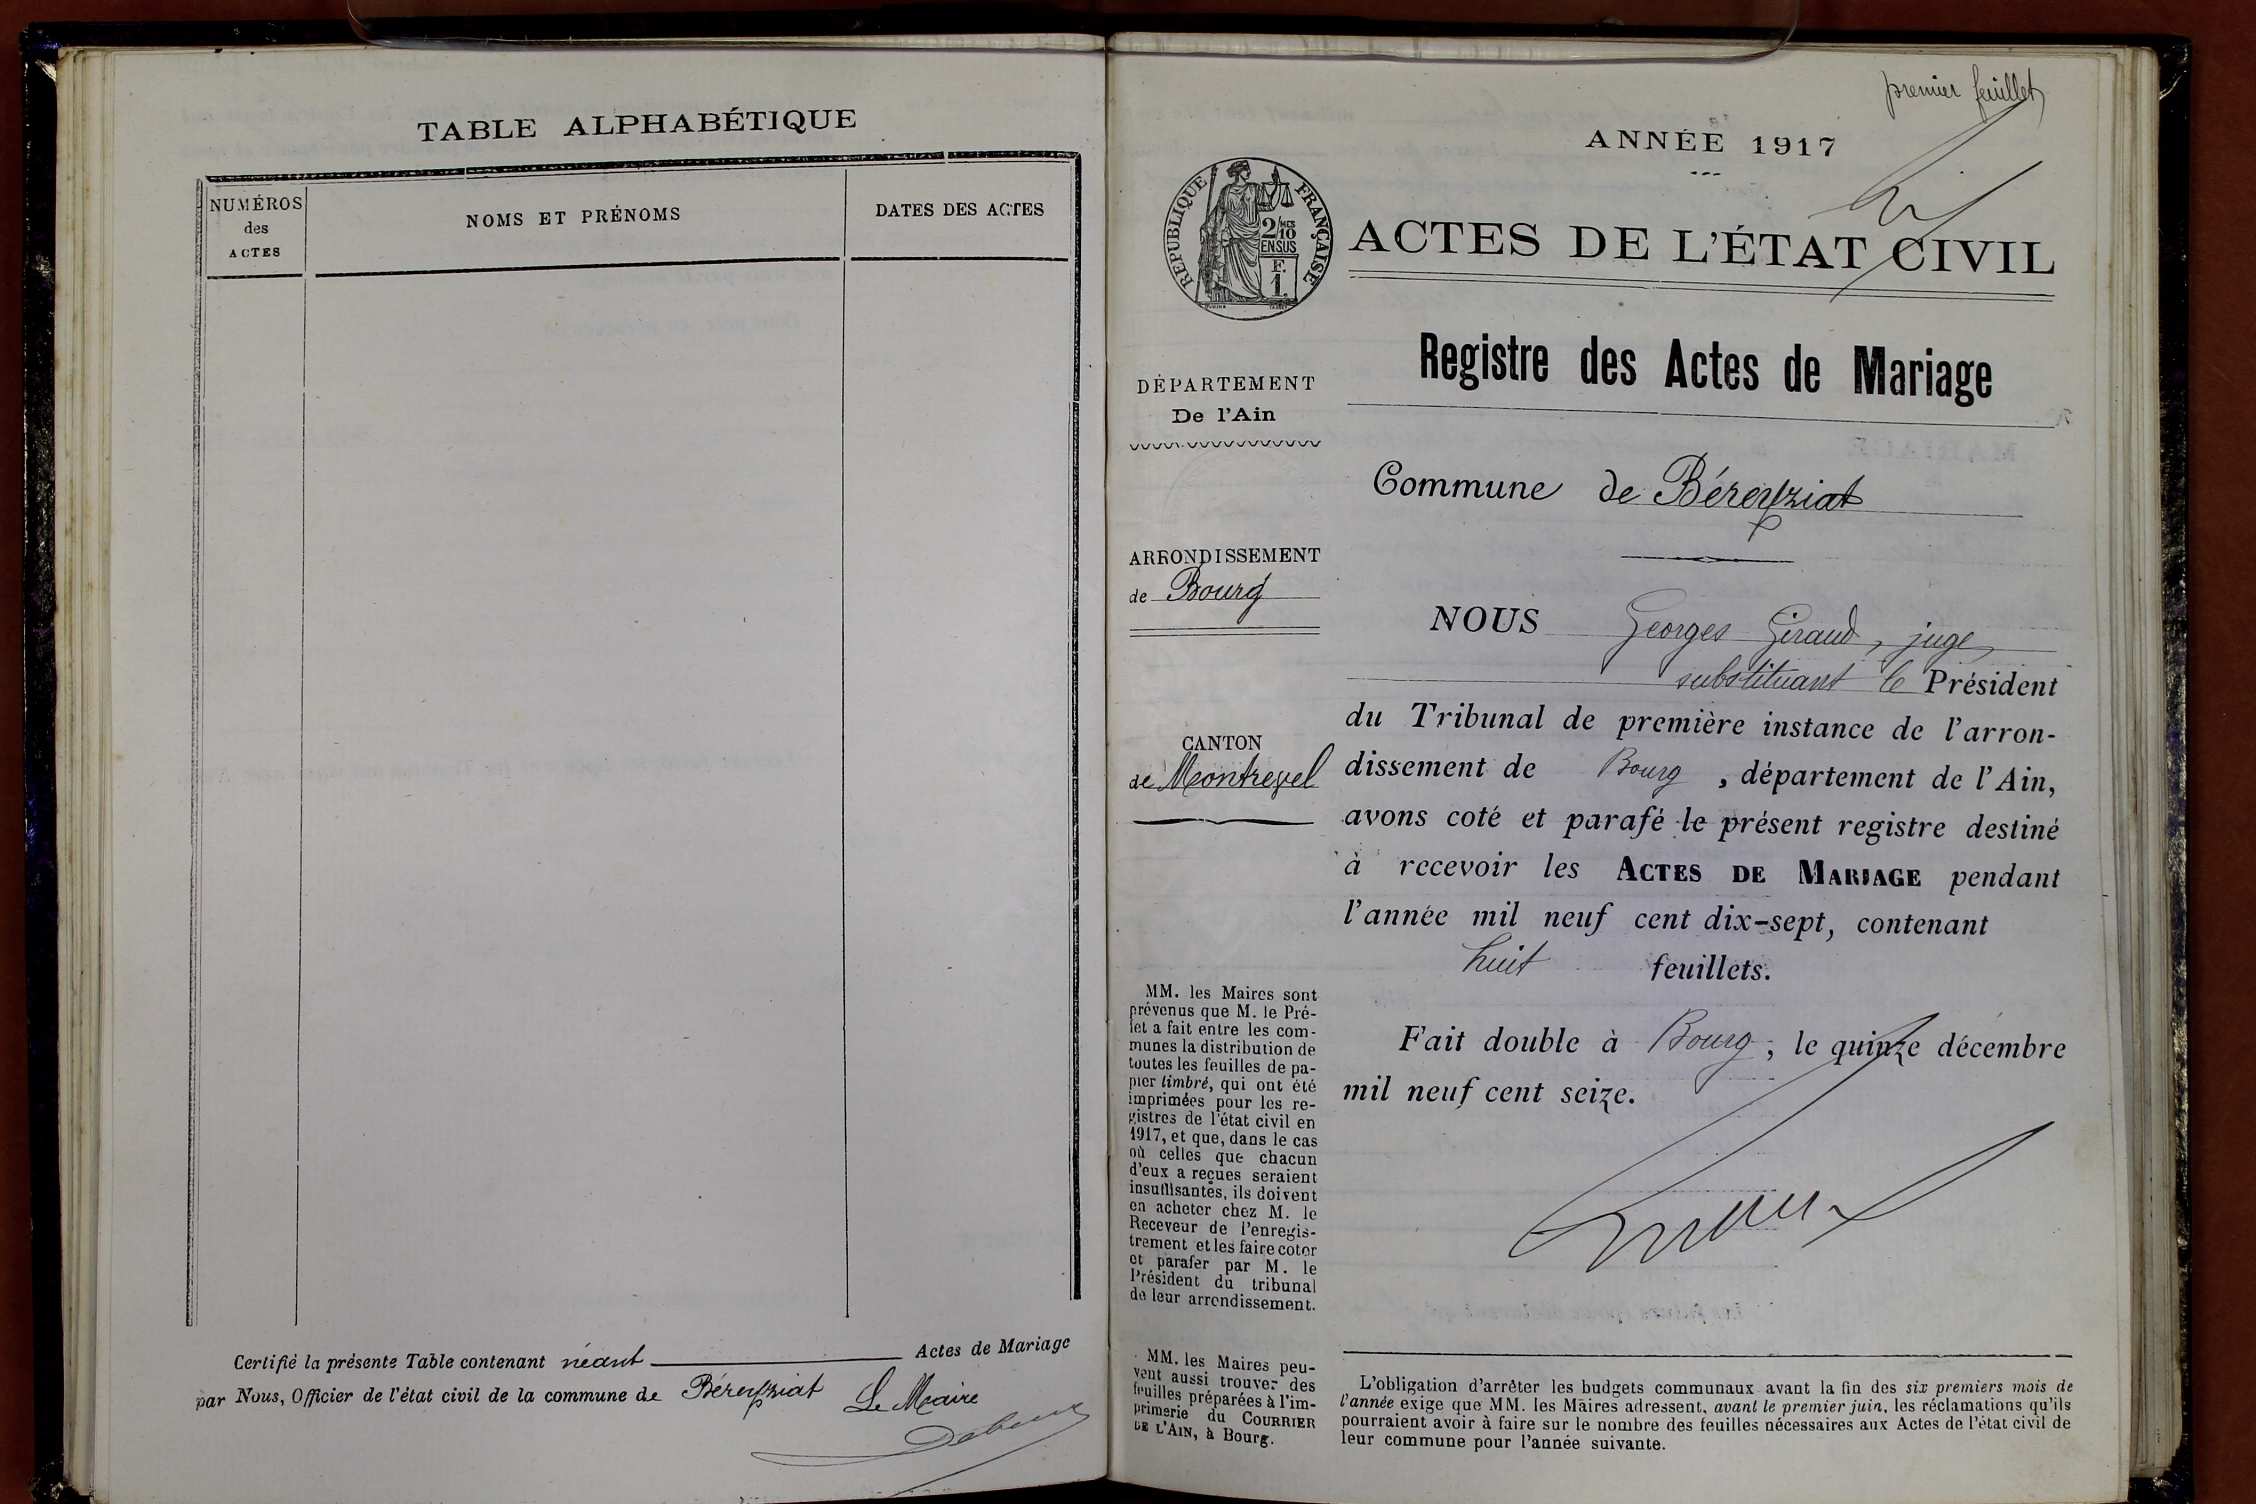 TABLE ALPHABÉTIQUE
NUMÉROS
des
ACTES
NOMS ET PRÉNOMS
DATES DES ACTES
Certifié la présente Table contenant néant Actes de Mariage
par Nous, Officier de l'état civil de la commune de Béreyziat Le Maire
premier feuillet
ANNÉE 1917
RÉPUBLIQUE FRANÇAISE
2/10
MES
EN SUS
F.
1.
ACTES DE L'ÉTAT CIVIL
Registre des Actes de Mariage
DÉPARTEMENT
De l'Ain
Commune de Béreyziat
ARRONDISSEMENT
de Bourg
CANTON
de Montrevel
NOUS Georges Giraud, juge
substituant le Président
du Tribunal de première instance de l'arron-
dissement de Bourg, département de l'Ain,
avons coté et parafé le présent registre destiné
à recevoir les ACTES DE MARIAGE pendant
l'année mil neuf cent dix-sept, contenant
huit feuillets.
Fait double à Bourg, le quinze décembre
mil neuf cent seize.
MM. les Maires sont
prévenus que M. le Pré-
fet a fait entre les com-
munes la distribution de
toutes les feuilles de pa-
pier timbré, qui ont été
imprimées pour les re-
gistres de l'état civil en
1917, et que, dans le cas
où celles que chacun
d'eux a reçues seraient
insuffisantes, ils doivent
en acheter chez M. le
Receveur de l'enregis-
trement et les faire coter
et parafer par M. le
Président du tribunal
de leur arrondissement.
MM. les Maires peu-
vent aussi trouver des
feuilles préparées à l'im-
primerie du COURRIER
DE L'AIN, à Bourg.
L'obligation d'arrêter les budgets communaux avant la fin des six premiers mois de
l'année exige que MM. les Maires adressent, avant le premier juin, les réclamations qu'ils
pourraient avoir à faire sur le nombre des feuilles nécessaires aux Actes de l'état civil de
leur commune pour l'année suivante.